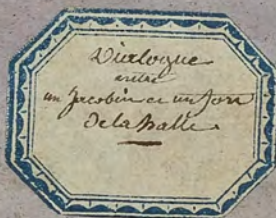 Dialogue
entre
un Jacobin et un fort
de la halle